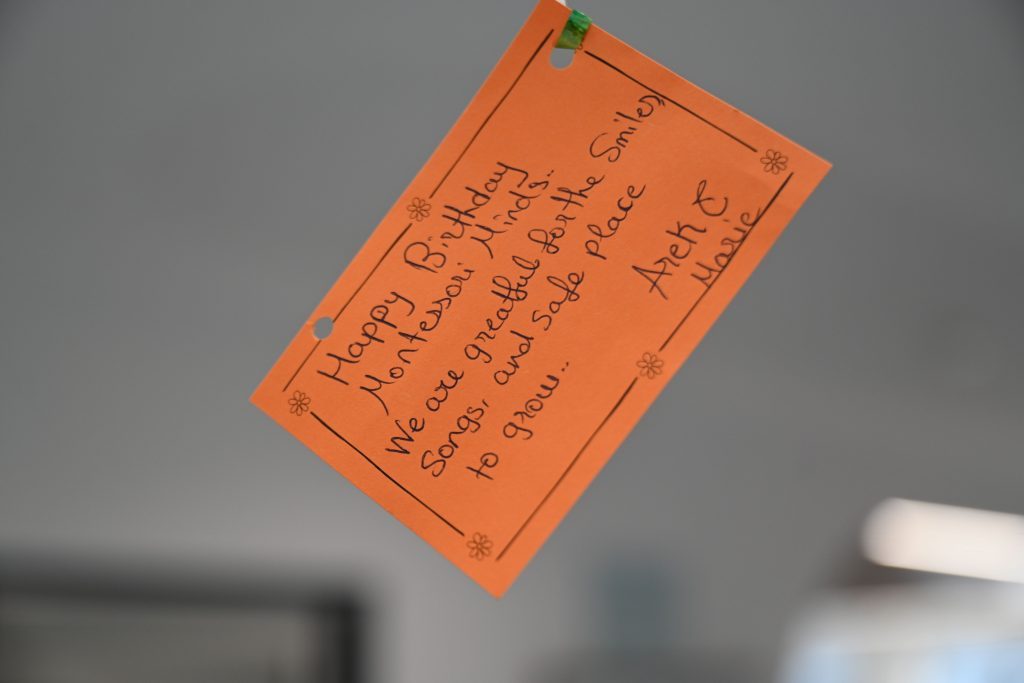 Happy Birthday
Montessori Minds..
We are greatful for the Smiles,
Songs, and safe place
to grow..
Arek &
Marie